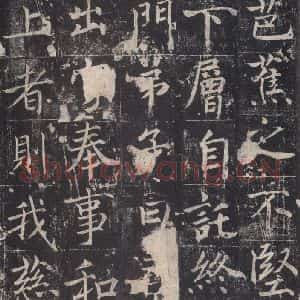 芭蕉之不堅
下層自託終
門弟子曰
出奏事和
上者則我慈
Shufawang.CN